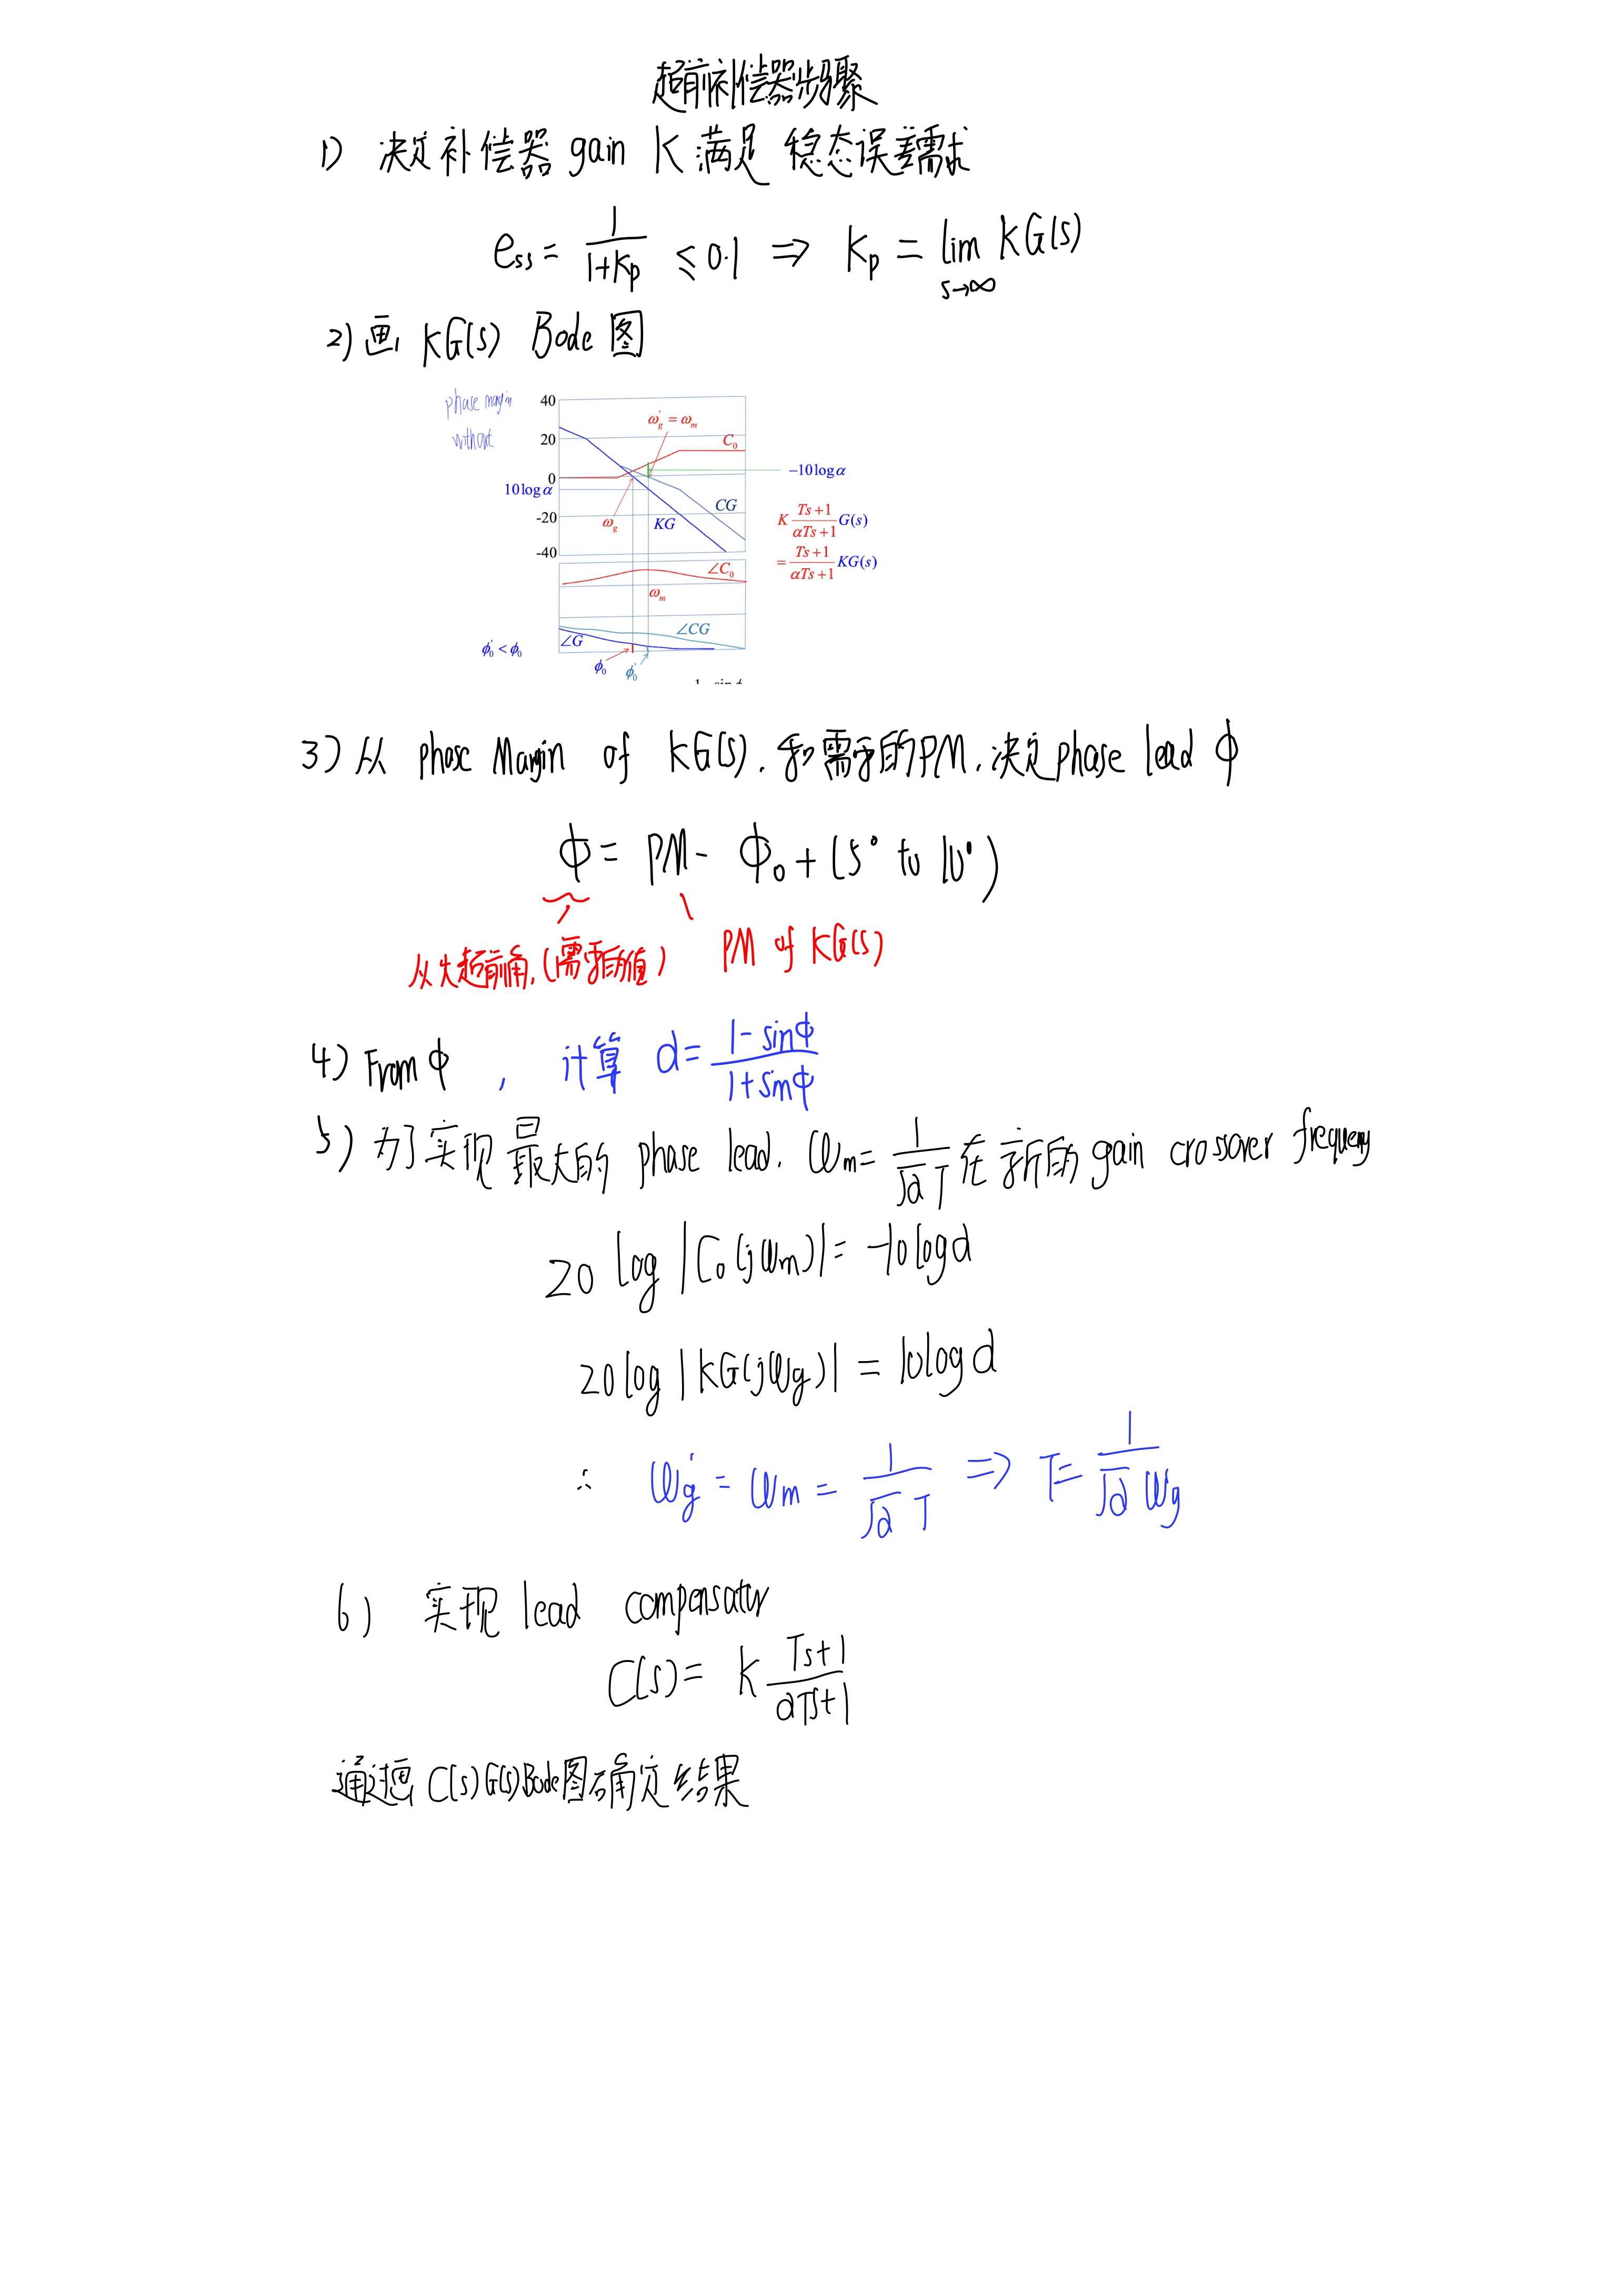 超前补偿器步骤
1) 决定补偿器 gain K 满足 稳态误差需求
e_ss = 1/(1+Kp) ≤ 0.1 ⇒ Kp = lim s→∞ KG(s)
2) 画 KG(s) Bode 图
phase margin
without
40
20
0
-20
-40
10logα
ω'g = ωm
C₀
−10logα
ωg
KG
CG
K (Ts+1)/(αTs+1) G(s)
= (Ts+1)/(αTs+1) KG(s)
∠C₀
ωm
∠CG
∠G
ϕ'₀ < ϕ₀
ϕ₀
ϕ'₀
3) 从 phase Margin of KG(s), 和需要的PM, 决定phase lead ϕ
ϕ = PM - ϕ₀ + (5° to 10°)
超前角, (需要的值)
PM of KG(s)
4) From ϕ , 计算 α = (1-sinϕ)/(1+sinϕ)
5) 为了实现最大的 phase lead, ωm = 1/(√α T) 在新的 gain crossover frequency
20 log |C₀(jωm)| = -10logα
20log |KG(jωg)| = 10logα
∴ ωg' = ωm = 1/(√α T) ⇒ T = 1/(√α ωg)
6) 实现 lead compensator
C(s) = K (Ts+1)/(αTs+1)
通过画 C(s)G(s)Bode图确定结果